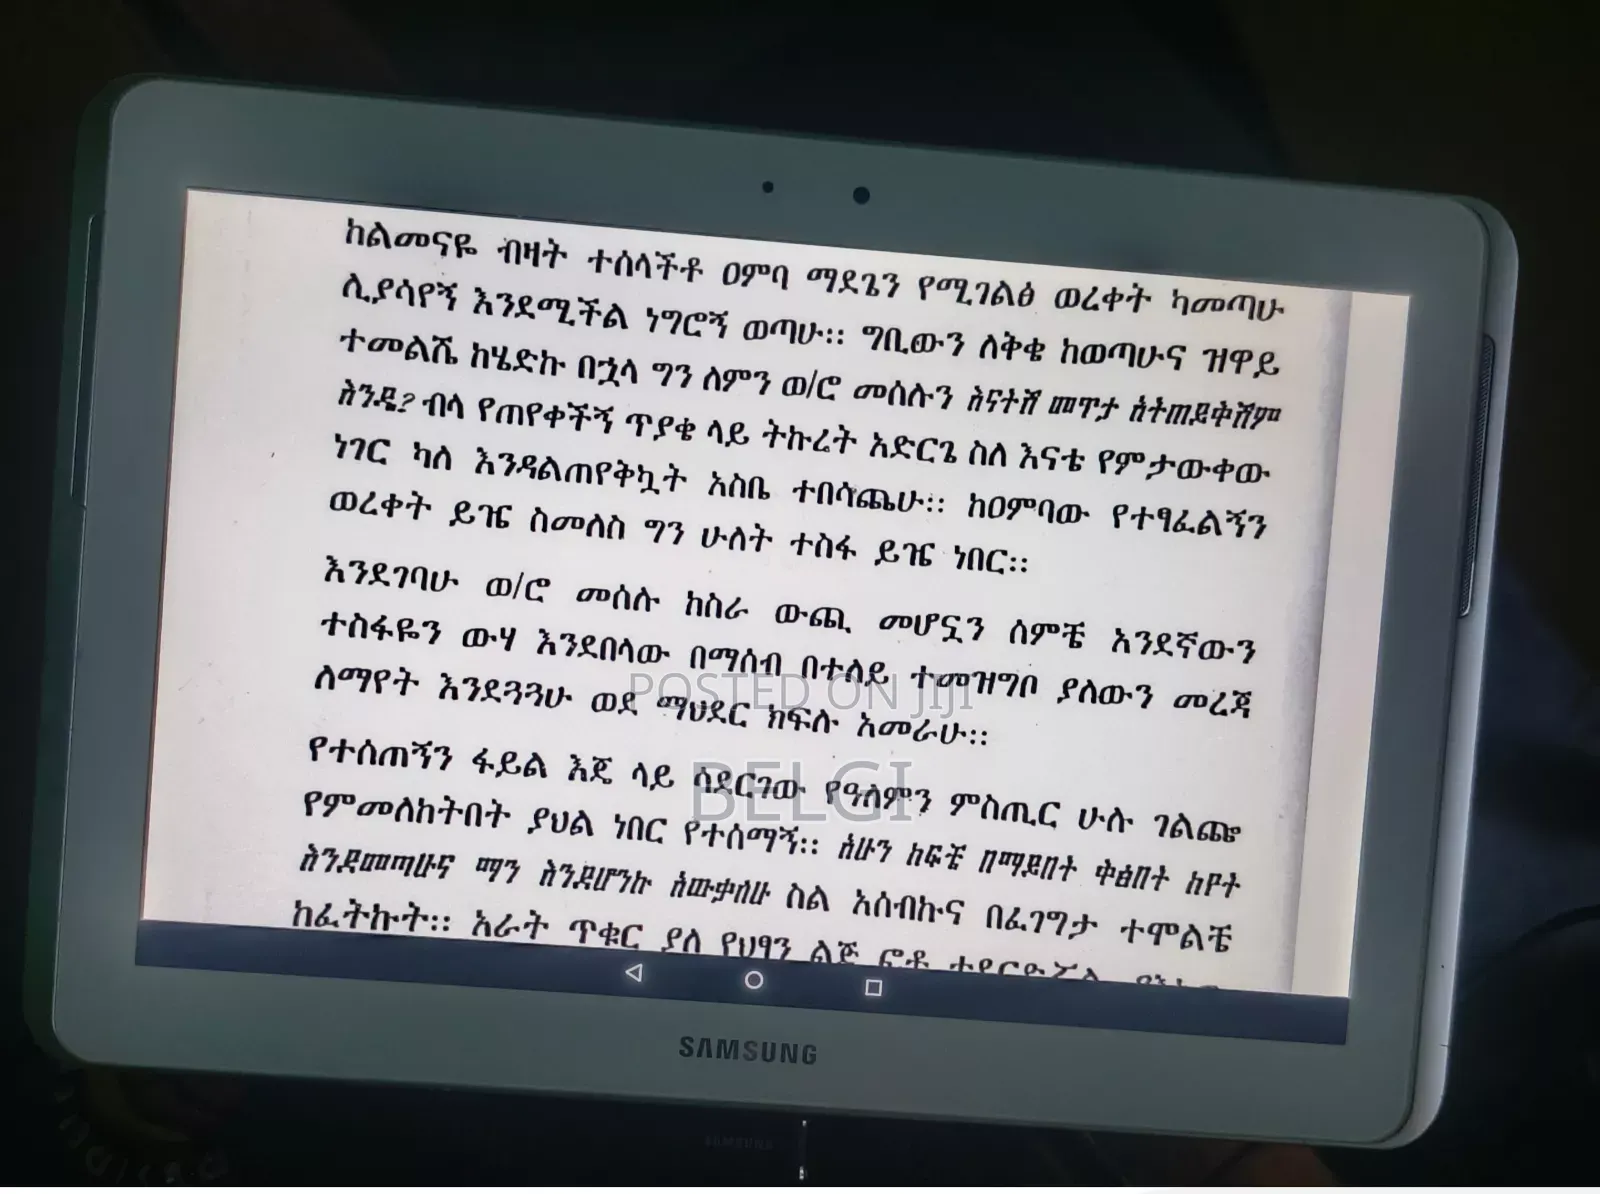 ከልመናዬ ብዛት ተሰላችቶ ዐምባ ማደጌን የሚገልፅ ወረቀት ካመጣሁ
ሊያሳየኝ እንደሚችል ነግሮኝ ወጣሁ፡፡ ግቢውን ለቅቄ ከወጣሁና ዝዋይ
ተመልሼ ከሄድኩ በኋላ ግን ለምን ወ/ሮ መሰሉን እናትሽ መጥታ አትጠይቅሽም
እንዴ? ብላ የጠየቀችኝ ጥያቄ ላይ ትኩረት አድርጌ ስለ እናቴ የምታውቀው
ነገር ካለ እንዳልጠየቅኳት አስቤ ተበሳጨሁ፡፡ ከዐምባው የተፃፈልኝን
ወረቀት ይዤ ስመለስ ግን ሁለት ተስፋ ይዤ ነበር፡፡
እንደገባሁ ወ/ሮ መሰሉ ከስራ ውጪ መሆኗን ሰምቼ አንደኛውን
ተስፋዬን ውሃ እንደበላው በማሰብ በተለይ ተመዝግቦ ያለውን መረጃ
ለማየት እንደጓጓሁ ወደ ማህደር ክፍሉ አመራሁ፡፡
የተሰጠኝን ፋይል እጄ ላይ ሳደርገው የዓለምን ምስጢር ሁሉ ገልጬ
የምመለከትበት ያህል ነበር የተሰማኝ፡፡ አሁን ከፍቼ በማይበት ቅፅበት ከየት
እንደመጣሁና ማን እንደሆንኩ አውቃለሁ ስል አሰብኩና በፈገግታ ተሞልቼ
ከፈትኩት፡፡ አራት ጥቁር ያለ የህፃን ልጅ ፎቶ
POSTED ON JIJI
BELGI
SAMSUNG
SAMSUNG